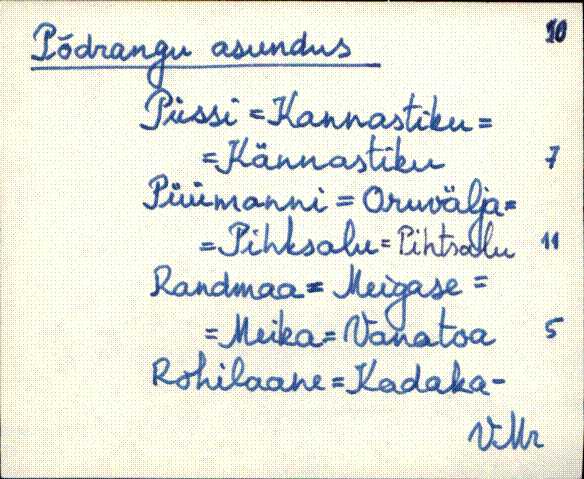 Põdrangu asundus 10
Püssi = Kannastiku =
= Kännastiku 7
Püümanni = Oruvälja =
= Pihksalu = Pihtsalu 11
Randmaa = Meigase =
= Meika = Vanatoa 5
Rohilaane = Kadaka-
V.Mr